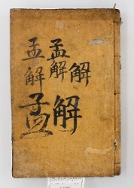 解解
孟解
孟解孟